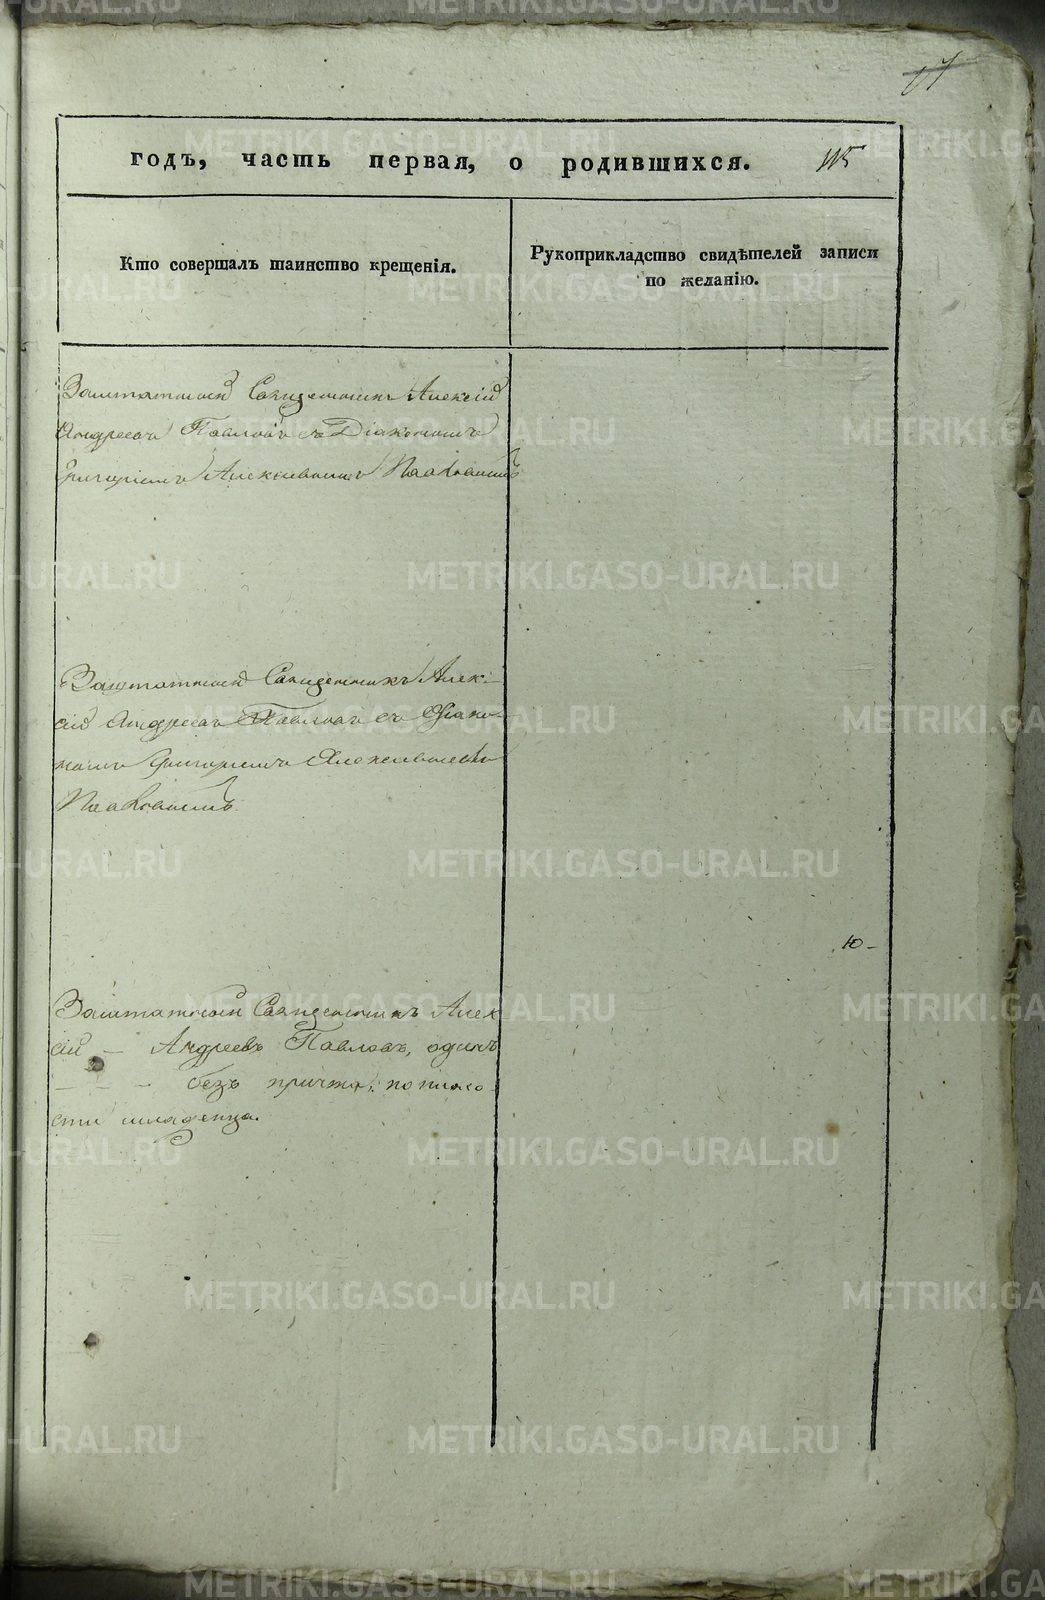 годъ, часть первая, о родившихся. 115
Кто совершалъ таинство крещенія.
Рукоприкладство свидѣтелей записи
по желанію.
Заштатный Священникъ Алексій
Андреевъ Павловъ съ Діакономъ
Григоріемъ Алексіевымъ
Заштатный Священникъ Алек-
сій Андреевъ Павловъ съ Діако-
номъ Григоріемъ Алексіевымъ
Заштатный Священникъ Алек
сій — Андреевъ Павловъ, одинъ
— — — безъ причта, по
сти младенца.
METRIKI.GASO-URAL.RU